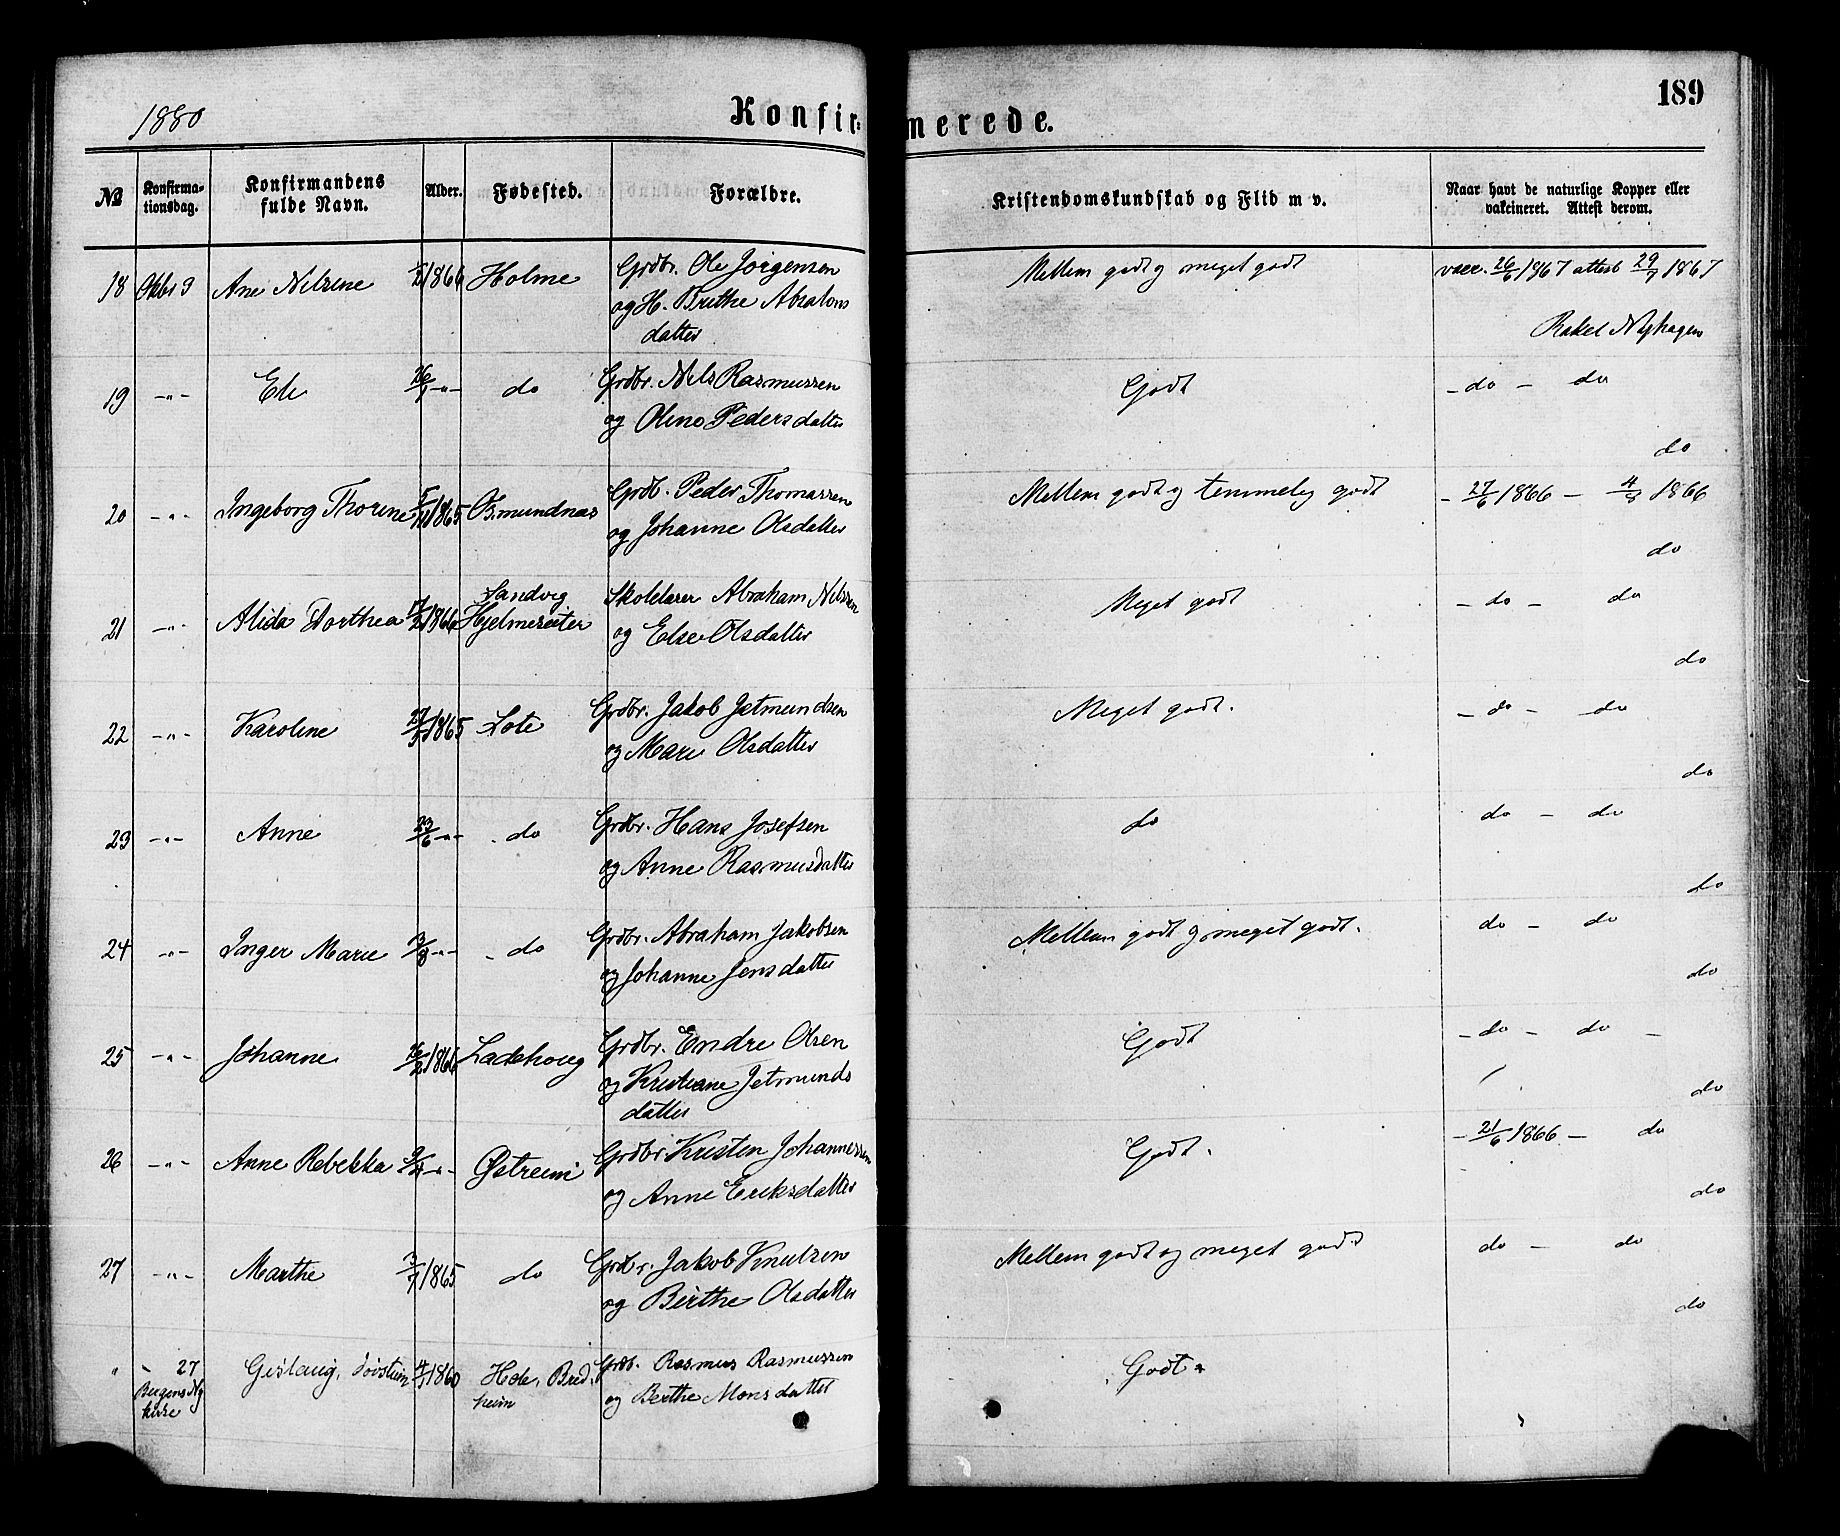 1880
Konfir-
merede.
189
No
Konfirma-
tionsdag.
Konfirmandens
fulde Navn.
Alder.
Fødested.
Forældre.
Kristendomskundskab og Flid m v.
Naar havt de naturlige Kopper eller
vakcineret. Attest derom.
18 Oktbr 3 Ane Nilsine 1866 Holme Grdbr. Ole Jørgensen Mellem godt og meget godt vacc. 26/6 1867 attest 29/7 1867
og H. Brithe Absalons
datter
Rakel Myhagen
19 -"- Eli -"- do Grdbr. Nils Rasmussen Godt - do - do
og Oline Pedersdatter
do
20 -"- Ingeborg Thorine 1865 Osmundnæs Grdb. Peder Thomassen Mellem godt og temmelig godt - 27/6 1866 - 1866
og Johanne Olsdatter
do
21 -"- Alida Dorthea 1866 Sandvig
Hjelmeseter Skolelærer Abraham Nilssen Meget godt - do - do
og Else Olsdatter
do
22 -"- Karoline 1865 Lote Grdbr. Jakob Jetmundsen Meget godt. - do - do
og Mari Olsdatter
do
23 -"- Anne 23/6 -"- do Grdbr. Hans Josefsen do do - do
og Anne Rasmusdatter
do
24 -"- Inger Marie 3/8 -"- do Grdbr. Abraham Jakobsen Mellem godt og meget godt. do - do
og Johanne Jensdatter
do
25 -"- Johanne 1866 Ladehoug Grdbr. Endre Olsen Godt - do - do -
og Kristiane Jetmunds
datter
do
26 -"- Anne Rebekka -"- Østreim Grdbr Kristen Johannessen Godt. - 21/6 1866 - do
og Anne Eriksdatter
do
27 -"- Marthe 3/7 1865 do Grdbr. Jakob Knutsen Mellem godt og meget godt do - do
og Birthe Olsdatter
do
" 27
Bergens Ny
kirke Gislaug, 1860 Hole, Bred,
heim Grdb. Rasmus Rasmussen Godt
og Berthe Monsdatter